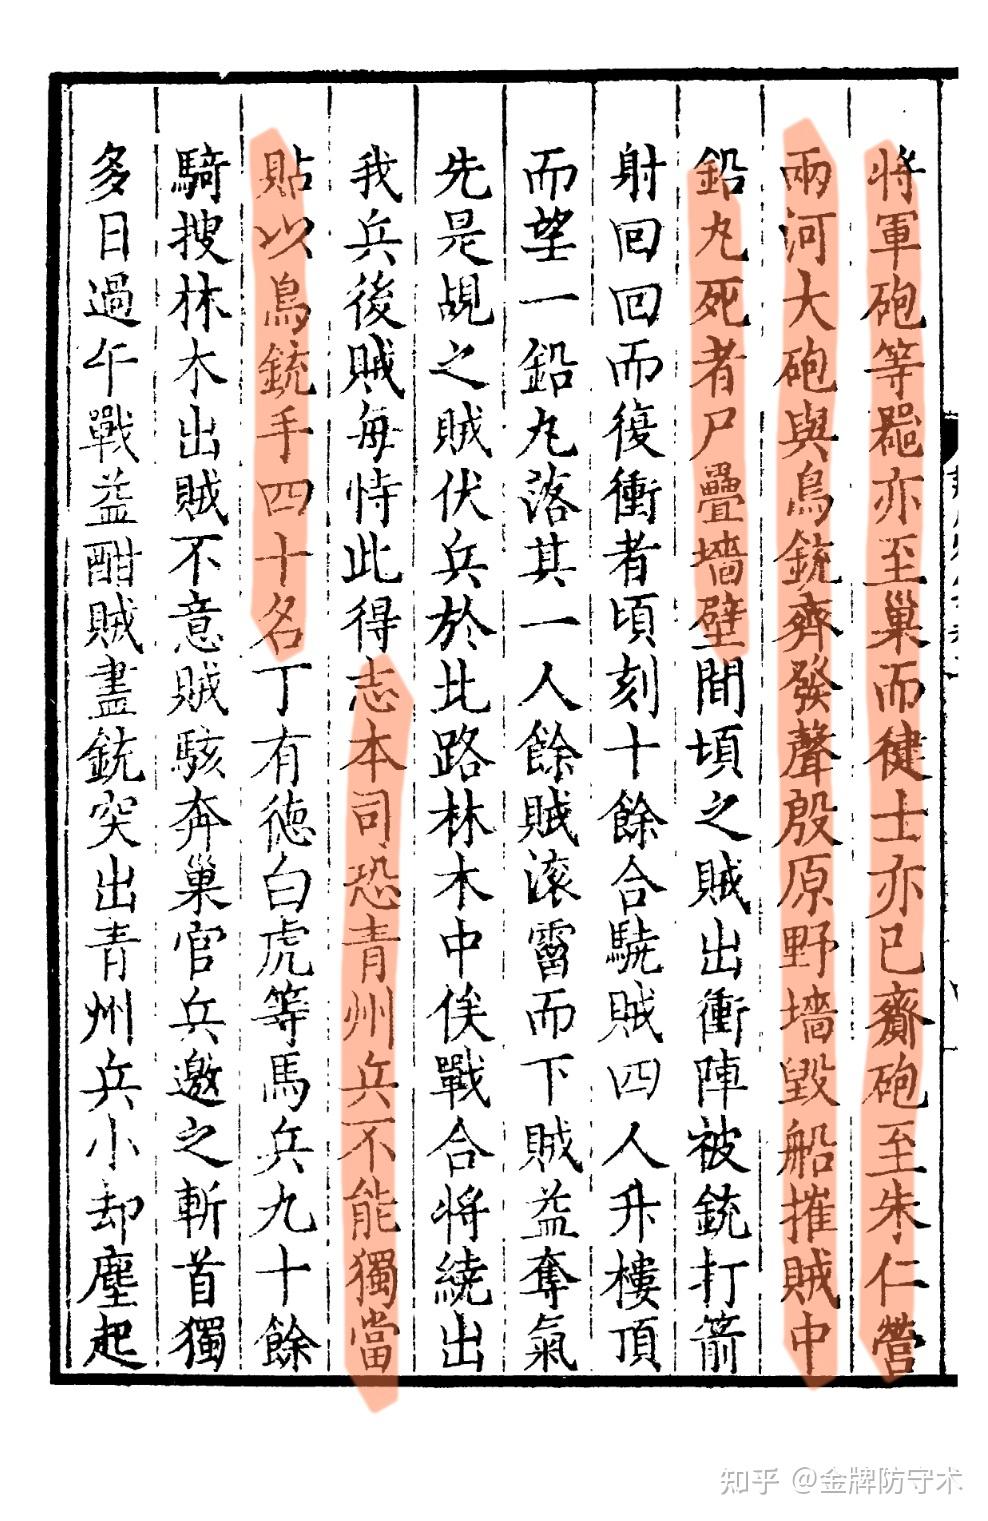 將軍砲等器亦至巢而健士亦已齎砲至朱仁營
兩河大砲與鳥銃齊發聲殷原野墻毀船摧賊中
鉛丸死者尸疊墻壁間頃之賊出衝陣被銃打箭
射回回而復衝者頃刻十餘合驍賊四人升樓頂
而望一鉛丸落其一人餘賊滾霤而下賊益奪氣
先是覘之賊伏兵於比路林木中俟戰合將繞出
我兵後賊每恃此得志本司恐青州兵不能獨當
貼以鳥銃手四十名丁有德白虎等馬兵九十餘
騎搜林木出賊不意賊駭奔巢官兵邀之斬首獨
多日過午戰益酣賊盡銃突出青州兵小却塵起
知乎 @金牌防守术